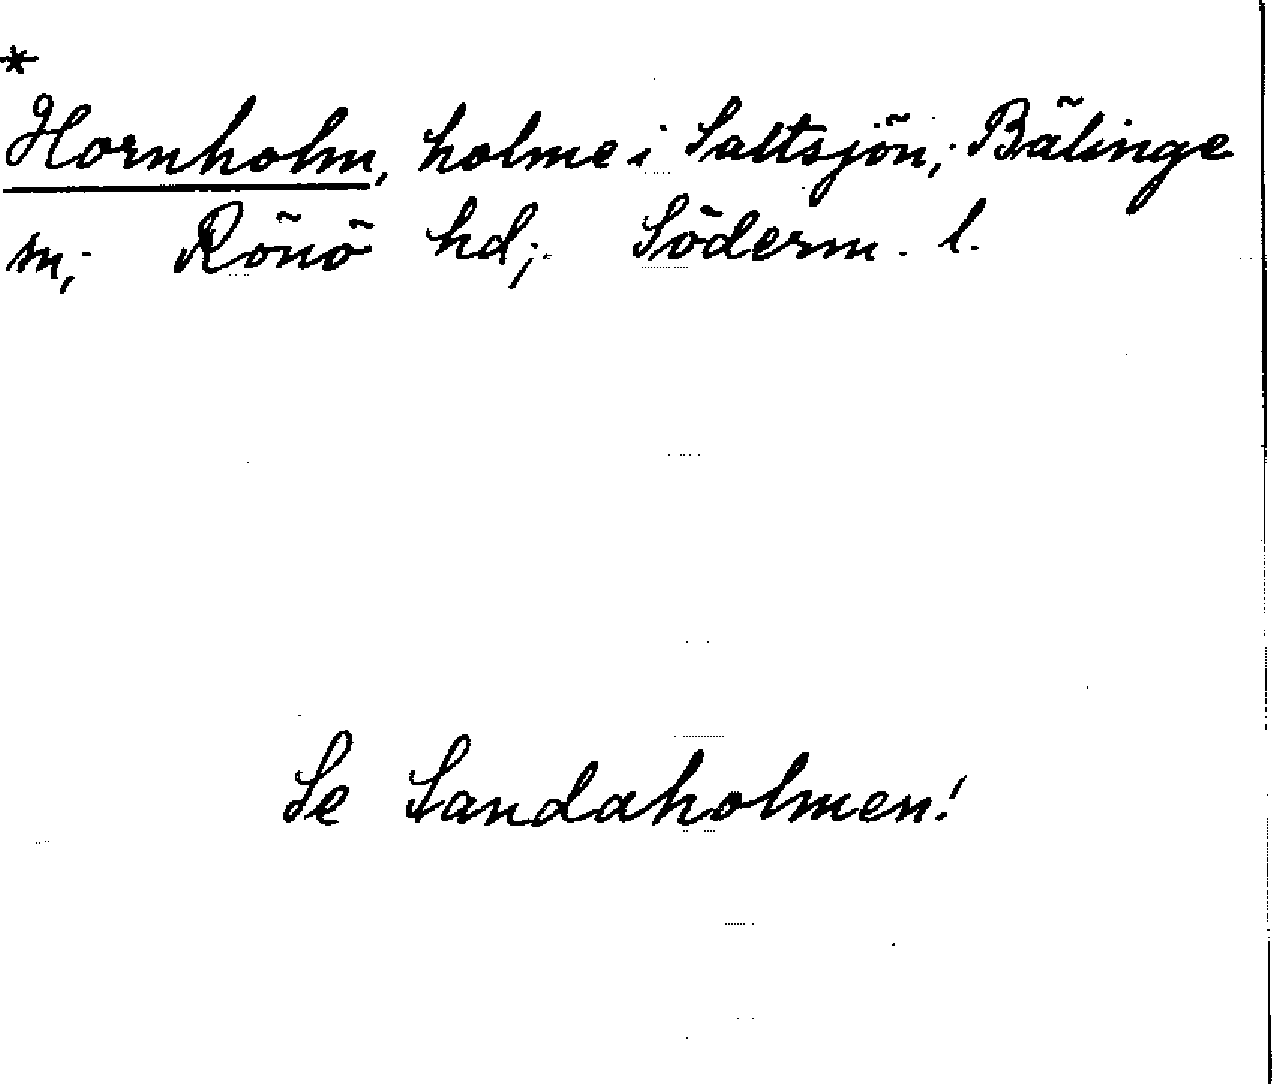 *
Hornholm, holme i Saltsjön; Bälinge
sn; Rönö hd; Söderm. l.
Se Sandaholmen!